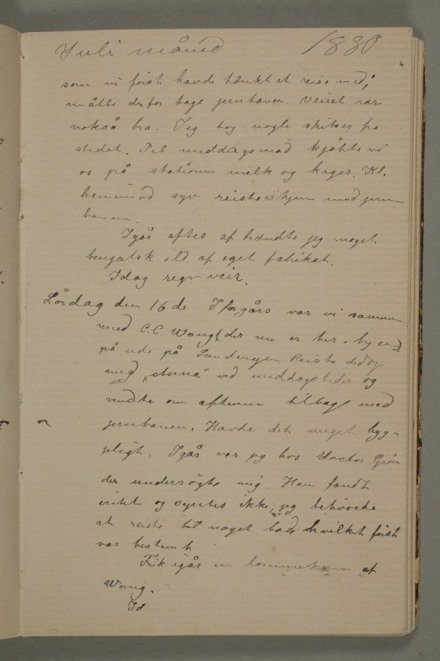 Juli måned 1880
som vi først havde tænkt at reise med,
måtte derfor tage jernbanen. Veiret var
også bra. Jeg tog nogle skitser fra
stedet. Til middagsmad kjøbte vi
os på stationen melk og kager. Kl.
henimod syv reiste vi hjem med jern
banen.
Igår aftes af brændte jeg noget
bengalsk ild af eget fabrikat.
Idag regn veir.
Lördag den 16 de Iforgårs var vi sammen
med C.C. Wang der nu er her i byen
på ude på Sandvigen Reiste
med „ " ved middagstider og
vendte om aftenen tilbage med
jernbanen. Havde det meget hyg-
geligt. Igår var jeg hos Doctor
der undersøgte mig. Han fandt
og syntes ikke, jeg behövede
at reise til noget bad hvilket först
var bestemt
Fik igår en af
Wang.
Id